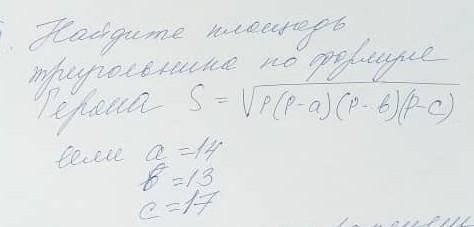 Найдите площадь
треугольника по формуле
Герона S = √P(P-a)(P-b)(P-c)
если a = 14
b = 13
c = 17